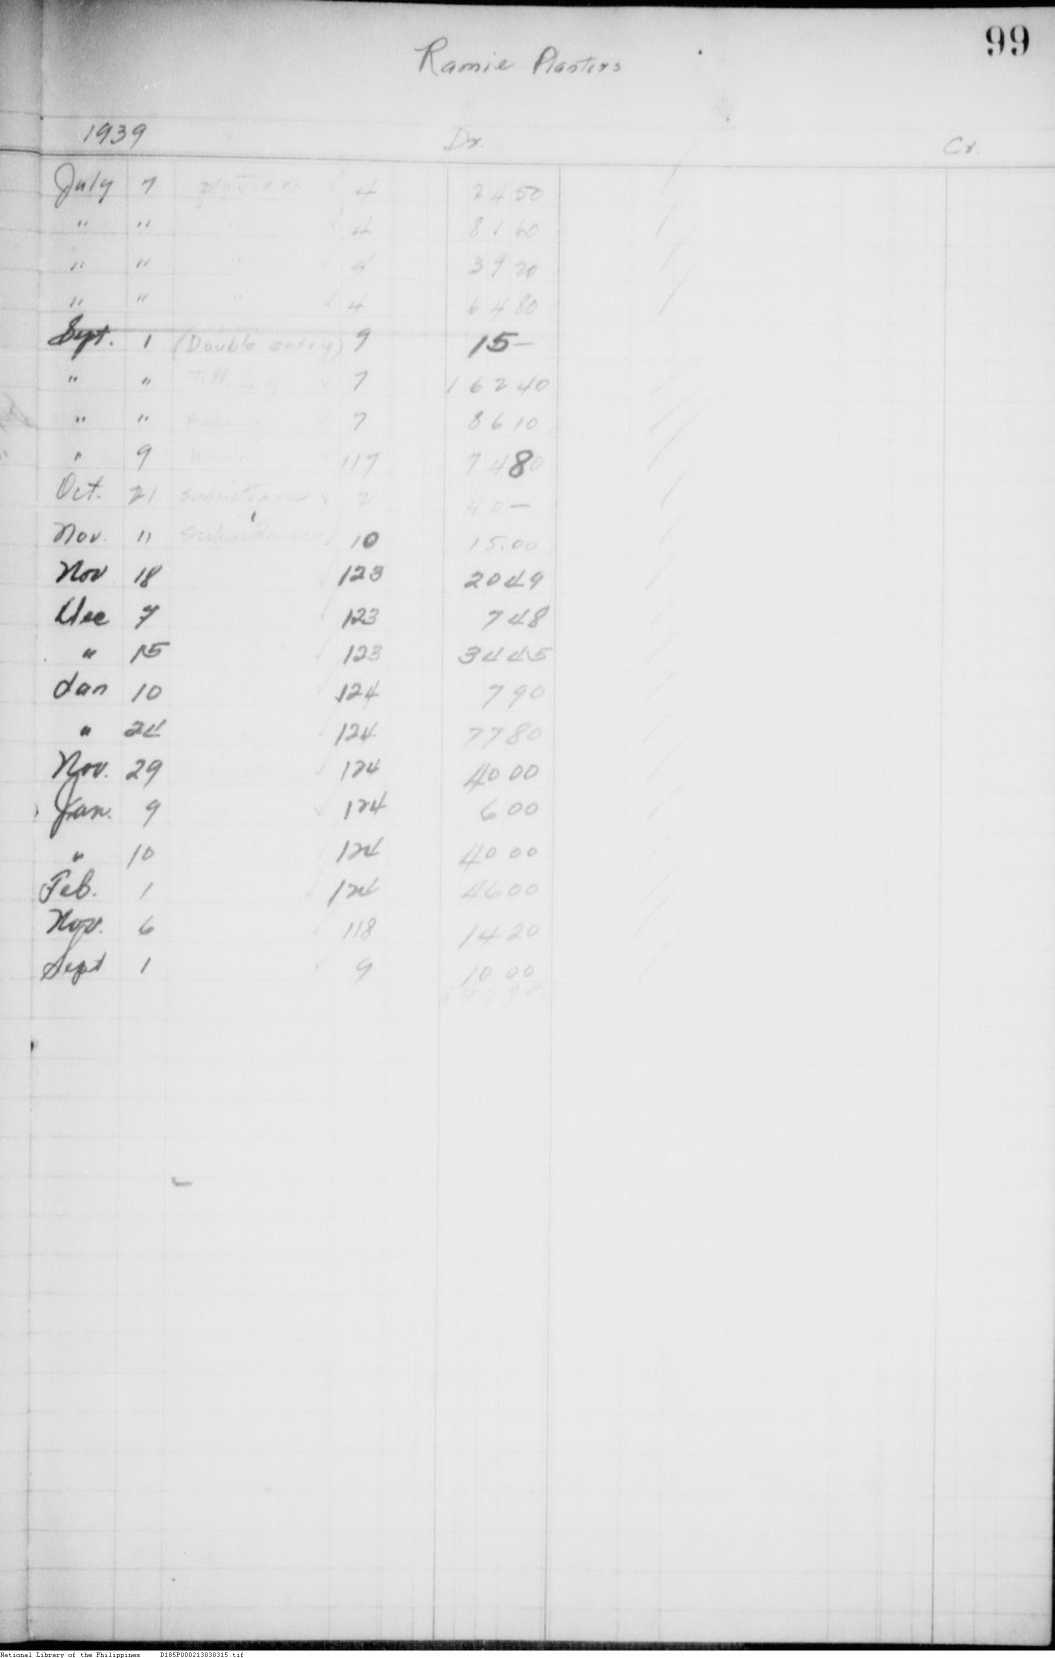 99
Ramie Planters
1939 Dr. Cr.
July 7 4 24 50
" " 4 81 60
" " 4 39 20
" " 4 64 80
Sept. 1 (Double entry) 9 15 —
" " 7 162 40
" " 7 86 10
" 9 117 74 80
Oct. 21 2 40 —
Nov. 11 10 15.00
Nov 18 123 20 49
Dec 7 123 7 48
" 15 123 34 45
Jan 10 124 7 90
" 24 124 77 80
Nov. 29 124 40 00
Jan. 9 124 6 00
" 10 124 40 00
Feb. 1 124 46 00
Nov. 6 118 14 20
Sept 1 9 10 00
National Library of the Philippines D185P000213838315.tif